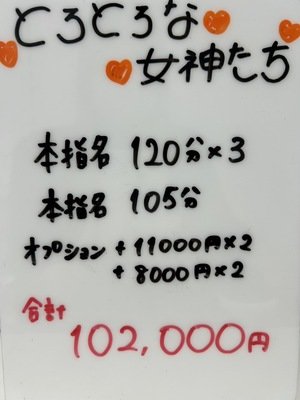 とろとろな
女神たち
本指名 120分×3
本指名 105分
オプション +11000円×2
+8000円×2
合計
102,000円